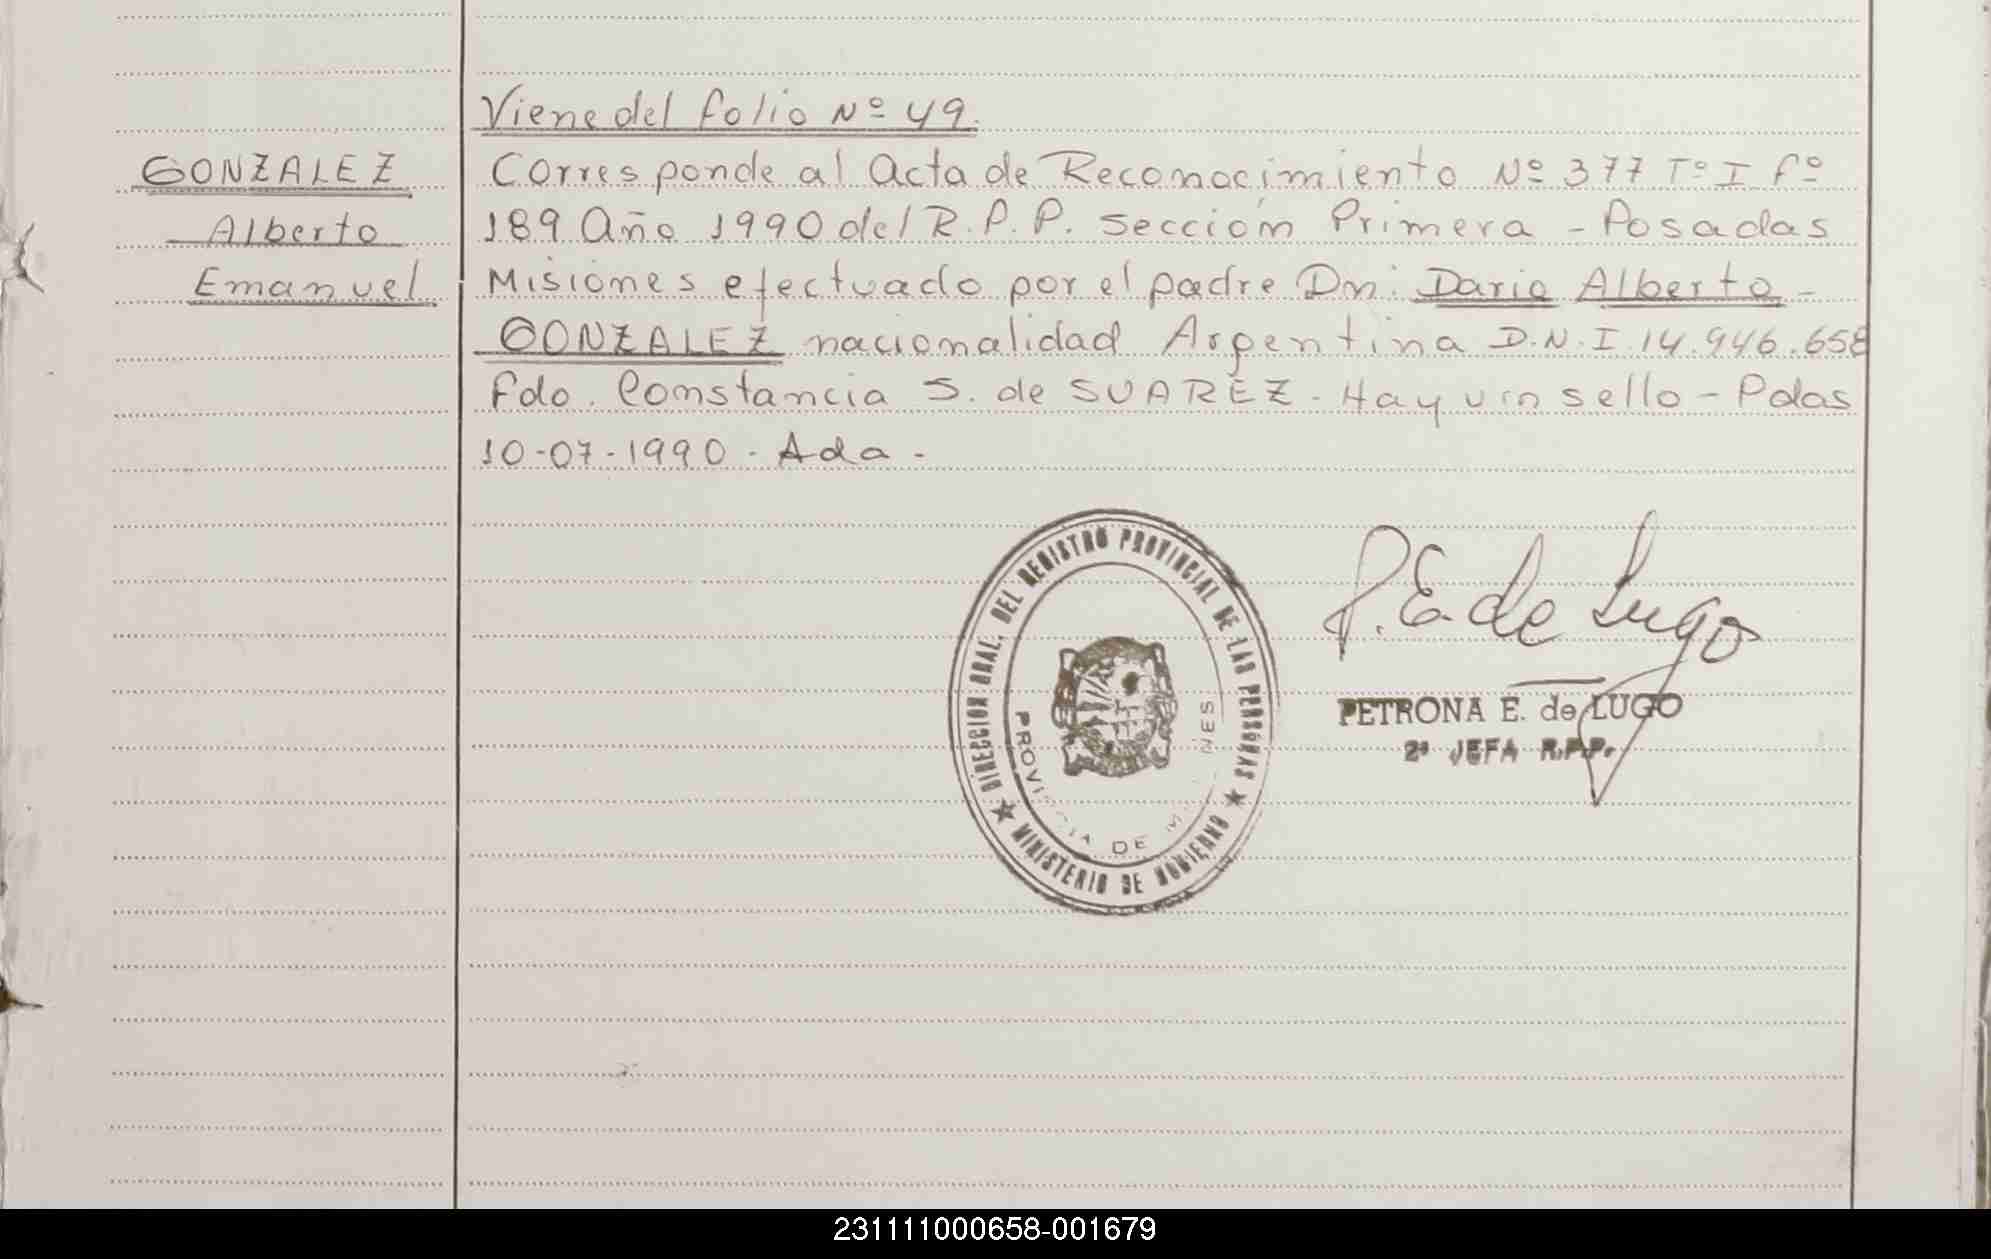 Viene del folio Nº 49.
GONZALEZ
Alberto
Emanuel
Corresponde al Acta de Reconocimiento Nº 377 Tº I fº
189 Año 1990 del R.P.P. sección Primera - Posadas
Misiones efectuado por el padre Dn: Dario Alberto -
GONZALEZ nacionalidad Argentina D.N.I. 14.946.658
Fdo. Constancia S. de SUAREZ - Hay un sello - Pdas
10-07-1990 - Ada -
DIRECCION GRAL. DEL REGISTRO PROVINCIAL DE LAS PERSONAS
★ MINISTERIO DE GOBIERNO ★
PROVINCIA DE M NES
P. E. de Lugo
PETRONA E. de LUGO
2ª JEFA R.P.P.
231111000658-001679